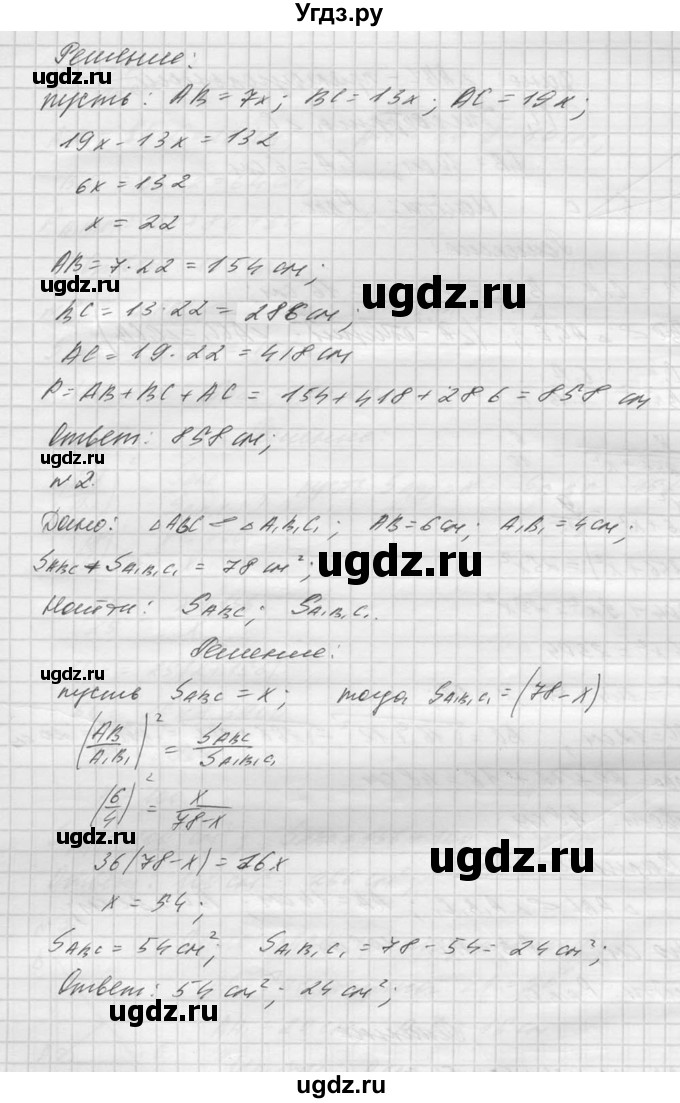 Угдз.ру
Решение:
ugdz.ru
пусть: AB = 7x; BC = 13x; AC = 19x;
19x - 13x = 132
6x = 132
x = 22
AB = 7 · 22 = 154 см;
ugdz.ru
BC = 13 · 22 = 286 см;
ugdz.ru
AC = 19 · 22 = 418 см
P = AB + BC + AC = 154 + 418 + 286 = 858 см
Ответ: 858 см;
ugdz.ru
№2.
Дано: △ABC ∽ △A₁B₁C₁; AB = 6 см; A₁B₁ = 4 см;
ugdz.ru
S_ABC + S_A₁B₁C₁ = 78 см²;
Найти: S_ABC; S_A₁B₁C₁.
Решение:
ugdz.ru
пусть S_ABC = x; тогда S_A₁B₁C₁ = (78 - x)
(AB/A₁B₁)² = S_ABC/S_A₁B₁C₁
(6/4)² = x/(78-x)
ugdz.ru
ugdz.ru
36(78 - x) = 16x
x = 54;
S_ABC = 54 см²; S_A₁B₁C₁ = 78 - 54 = 24 см²;
Ответ: 54 см²; 24 см²;
ugdz.ru
ugdz.ru
ugdz.ru